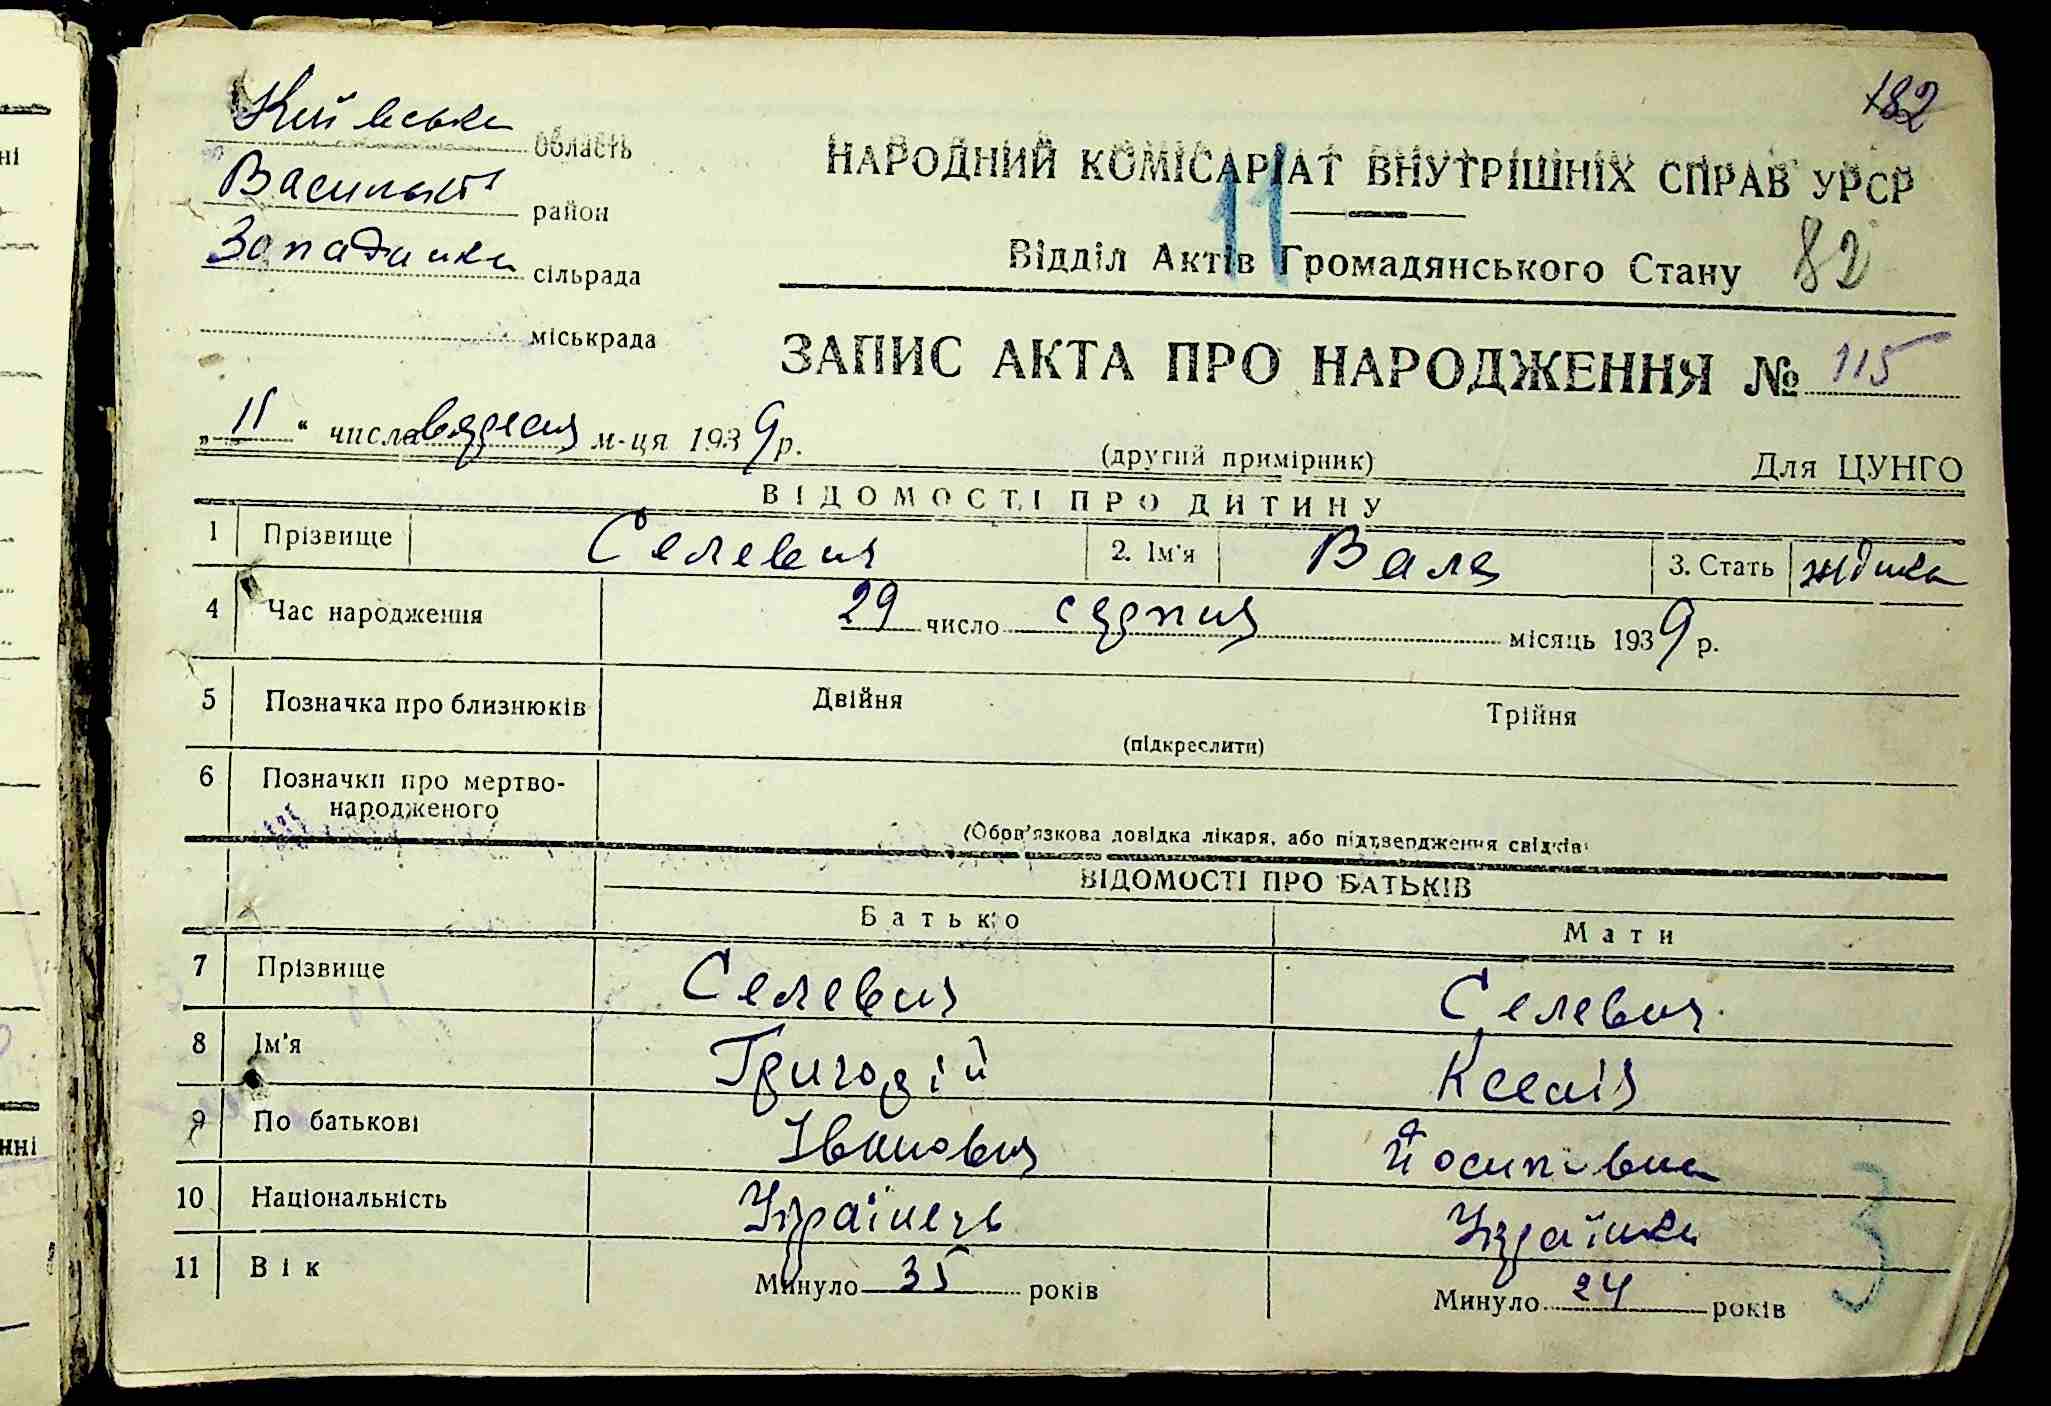 182
Київська область
НАРОДНИЙ КОМІСАРІАТ ВНУТРІШНІХ СПРАВ УРСР
Васильків район
11
Відділ Актів Громадянського Стану 82
Западинка сільрада
міськрада
ЗАПИС АКТА ПРО НАРОДЖЕННЯ № 115
„ 11 “ числа вересня м-ця 1939 р.
(другий примірник) Для ЦУНГО
ВІДОМОСТІ ПРО ДИТИНУ
1 Прізвище Селевич 2. Ім'я Валя 3. Стать
4 Час народження 29 число серпня місяць 1939 р.
5 Позначка про близнюків Двійня Трійня
(підкреслити)
6 Позначки про мертво-
народженого
(Обов'язкова довідка лікаря, або підтвердження свідків)
ВІДОМОСТІ ПРО БАТЬКІВ
Батько Мати
7 Прізвище Селевич Селевич
8 Ім'я Григорій Ксенія
9 По батькові Іванович Йосипівна
10 Національність Українець Українка
11 Вік Минуло 35 років Минуло 24 років
3